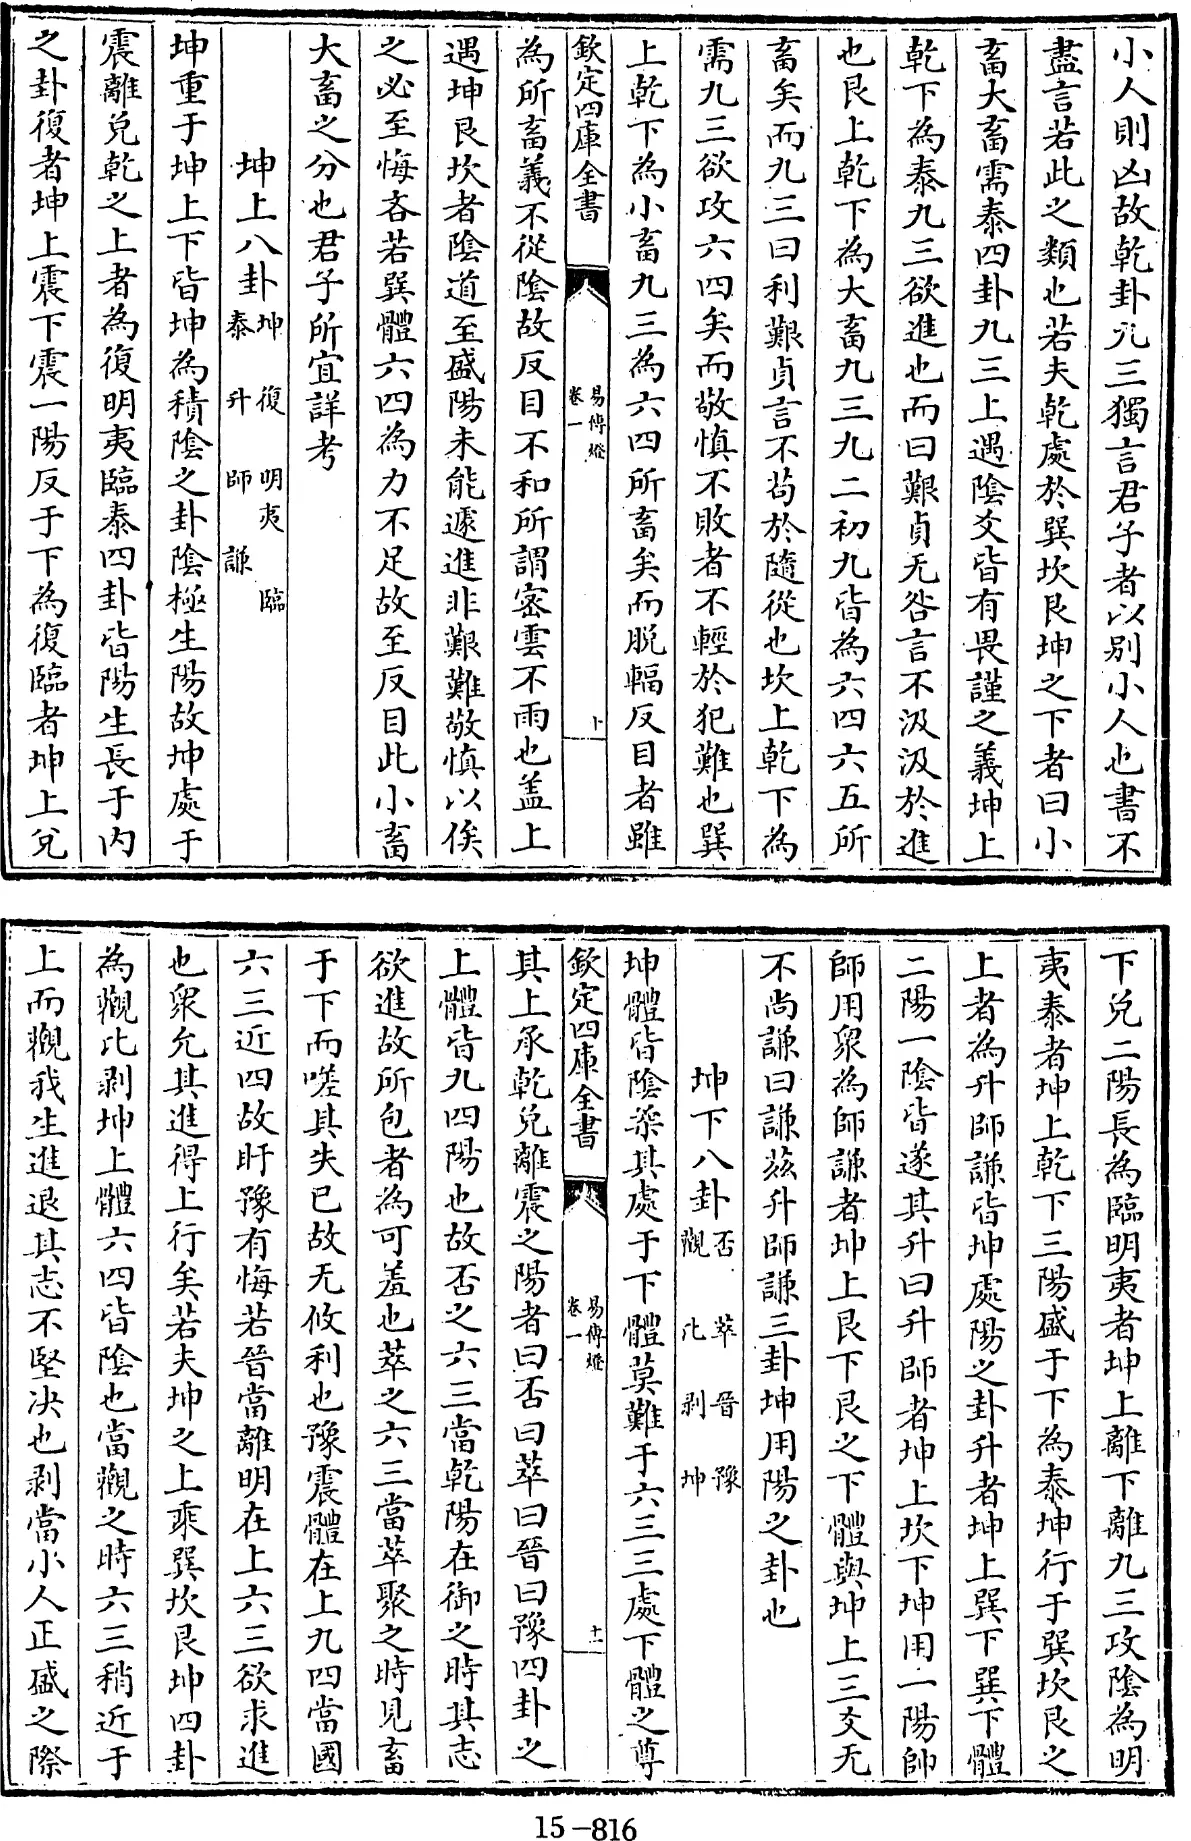 小人則凶故乾卦九三獨言君子者以別小人也書不
盡言若此之類也若夫乾處於巽坎艮坤之下者曰小
畜大畜需泰四卦九三上遇陰爻皆有畏謹之義坤上
乾下為泰九三欲進也而曰艱貞无咎言不汲汲於進
也艮上乾下為大畜九三九二初九皆為六四六五所
畜矣而九三曰利艱貞言不茍於隨從也坎上乾下為
需九三欲攻六四矣而敬慎不敗者不輕於犯難也巽
上乾下為小畜九三為六四所畜矣而脫輻反目者雖
欽定四庫全書
易傳燈
卷一
十
為所畜義不從陰故反目不和所謂密雲不雨也盖上
遇坤艮坎者陰道至盛陽未能遽進非艱難敬慎以俟
之必至悔吝若巽體六四為力不足故至反目此小畜
大畜之分也君子所宜詳考
坤上八卦
坤 復 明夷 臨
泰 升 師 謙
坤重于坤上下皆坤為積陰之卦陰極生陽故坤處于
震離兌乾之上者為復明夷臨泰四卦皆陽生長于内
之卦復者坤上震下震一陽反于下為復臨者坤上兌
下兌二陽長為臨明夷者坤上離下離九三攻陰為明
夷泰者坤上乾下三陽盛于下為泰坤行于巽坎艮之
上者為升師謙皆坤處陽之卦升者坤上巽下巽下體
二陽一陰皆遂其升曰升師者坤上坎下坤用一陽帥
師用衆為師謙者坤上艮下艮之下體與坤上三爻无
不尚謙曰謙兹升師謙三卦坤用陽之卦也
坤下八卦
否 萃 晉 豫
觀 比 剥 坤
坤體皆陰柔其處于下體莫難于六三三處下體之尊
欽定四庫全書
易傳燈
卷一
十一
其上承乾兌離震之陽者曰否曰萃曰晉曰豫四卦之
上體皆九四陽也故否之六三當乾陽在御之時其志
欲進故所包者為可羞也萃之六三當萃聚之時見畜
于下而嗟其失已故无攸利也豫震體在上九四當國
六三近四故盱豫有悔若晉當離明在上六三欲求進
也衆允其進得上行矣若夫坤之上乘巽坎艮坤四卦
為觀比剥坤上體六四皆陰也當觀之時六三稍近于
上而觀我生進退其志不堅决也剥當小人正盛之際
15-816